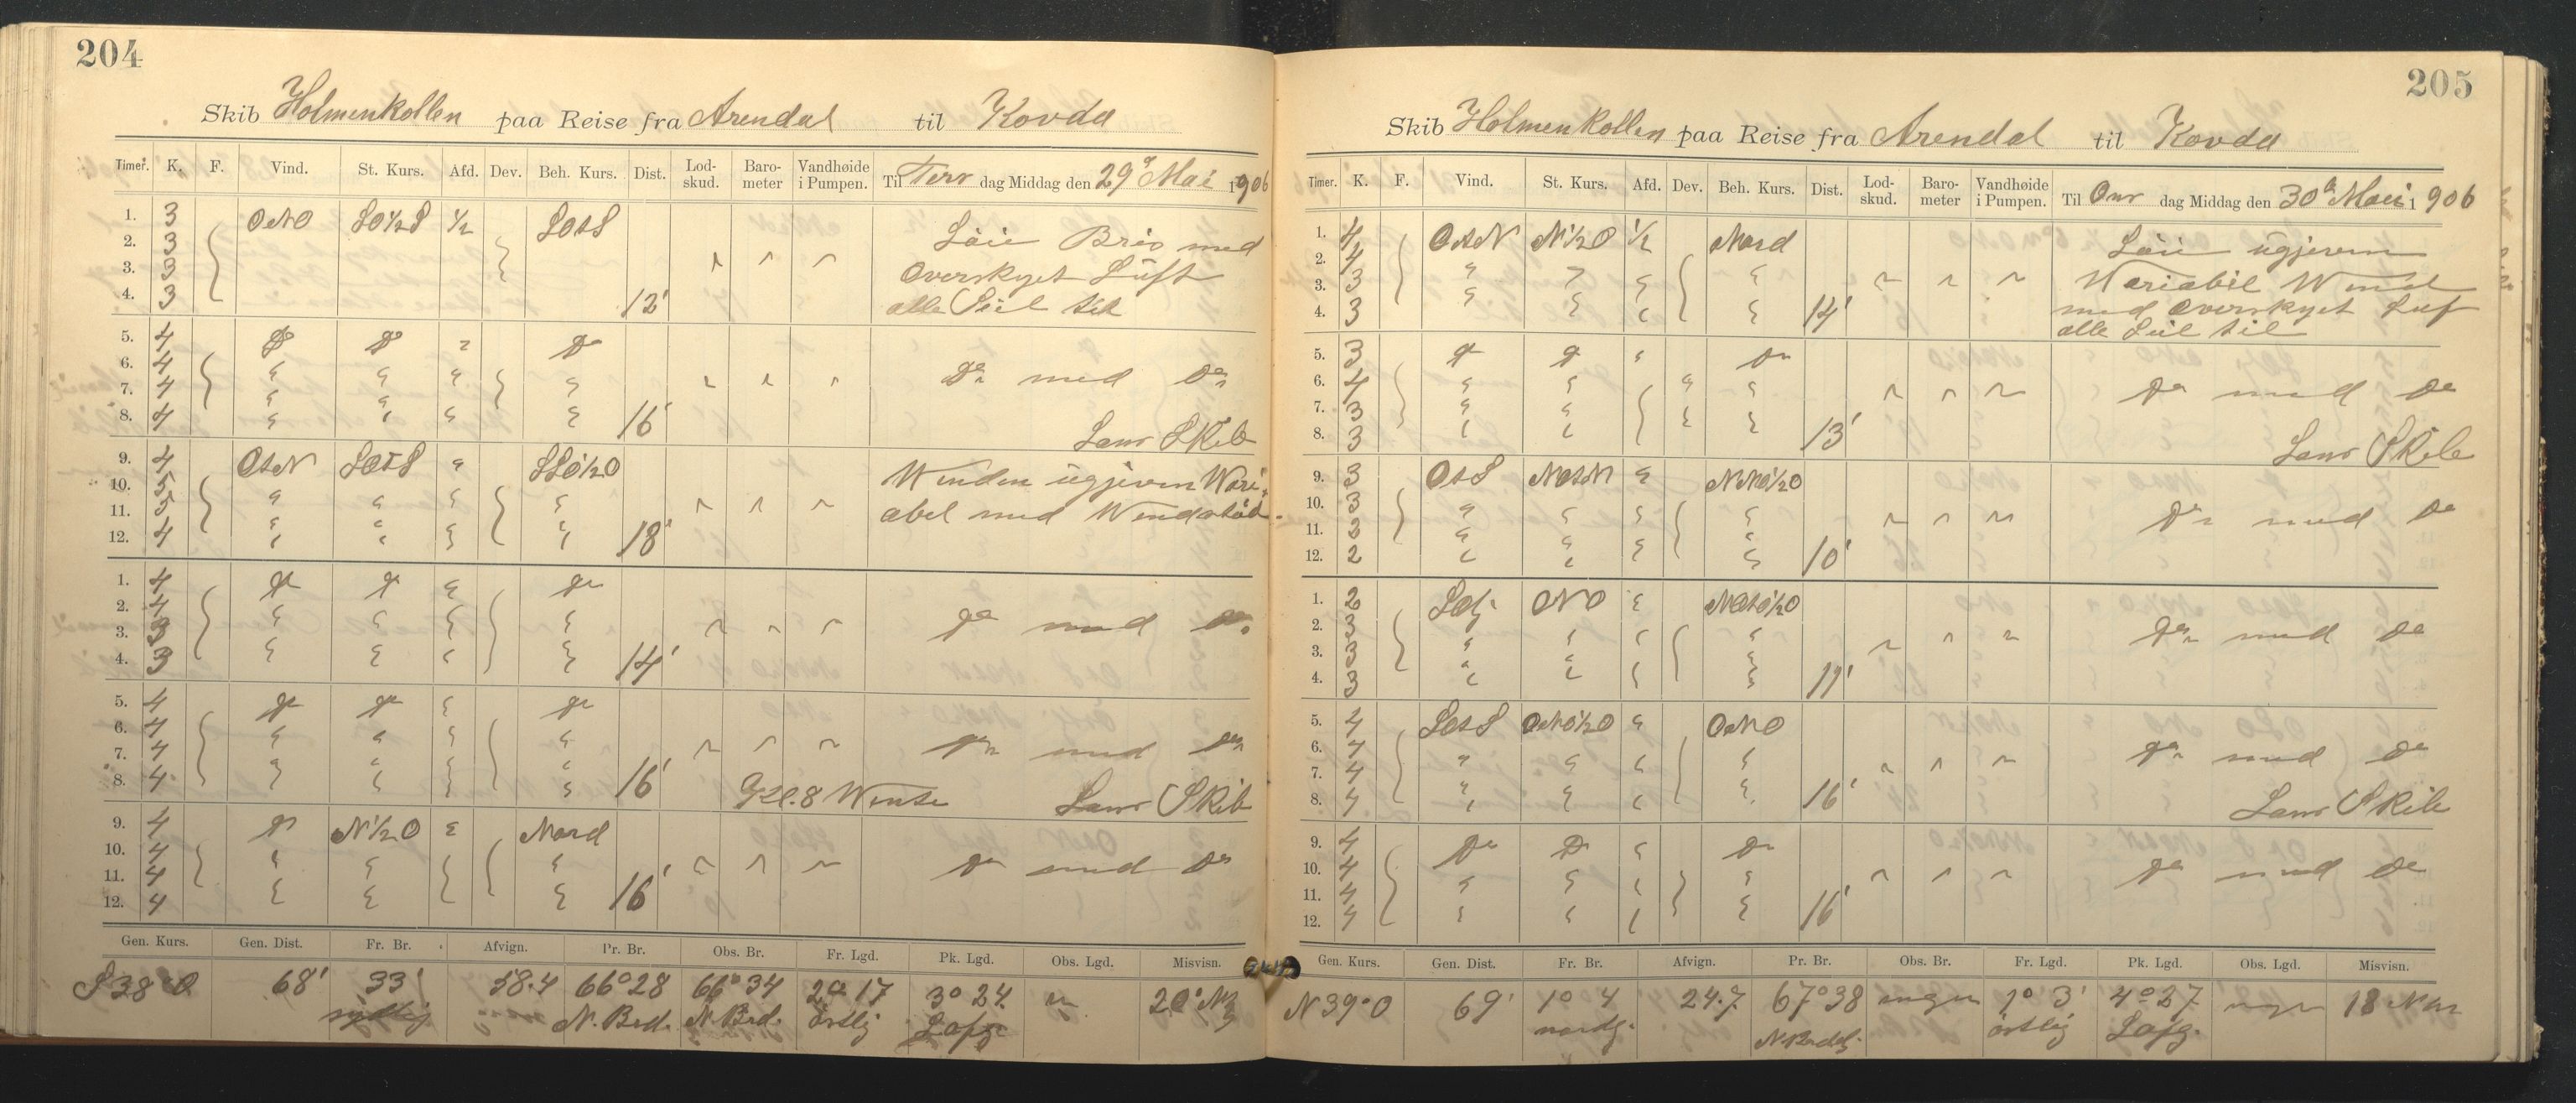 204
Skib Holmenkollen paa Reise fra Arendal til Kovda
Timer. K. F. Vind. St. Kurs. Afd. Dev. Beh. Kurs. Dist. Lod-skud. Baro-meter Vandhøide i Pumpen. Til Tirs dag Middag den 29de Mai 1906
1. 3 ONO SO1/2S 1/2 SOtS
2. 3 Løie Bris med
3. 3 Overskyet Luft
4. 3 12' alle Seil til
5. 4 Do Do " Do
6. 4 " " " "
7. 4 " " " " Do med Do
8. 4 " " " " 16'
Lans Skib
9. 4 OtN SOtS " SSO1/2O
10. 5 " " " " Vinden ugjeven Vari-
11. 5 " " " " abel med Vindstød
12. 4 " " " " 18'
1. 4 Do Do " Do
2. 4 " " " "
3. 3 " " " " Do med Do
4. 3 " " " " 14'
5. 4 Do Do " Do
6. 4 " " " "
7. 4 " " " " Do med Do
8. 4 " " " " 16'
Kl. 8 Vendte Lans Skib
9. 4 Do N1/2O " Nord
10. 4 " " " "
11. 4 " " " " Do med Do
12. 4 " " " " 16'
Gen. Kurs. Gen. Dist. Fr. Br. Afvign. Pr. Br. Obs. Br. Fr. Lgd. Pk. Lgd. Obs. Lgd. Misvisn.
S 38° O 68' 33' 58.4 66°28 66°34 2° 17 3° 24 20°
sydlig N. Brd. N Brd. østlig
205
Skib Holmenkollen paa Reise fra Arendal til Kovda
Timer. K. F. Vind. St. Kurs. Afd. Dev. Beh. Kurs. Dist. Lod-skud. Baro-meter Vandhøide i Pumpen. Til Ons dag Middag den 30de Mai 1906
1. 4 OtN N1/2O 1/2 Nord
2. 4 " " " " Løie ugjeven
3. 3 " " " " Variabil Wind
4. 3 " " " " 14' med Overskyet Luf
alle Seil til
5. 3 Do Do " Do
6. 4 " " " " "
7. 3 " " " " " Do med Do
8. 3 " " " " 13'
Lans Skib
9. 3 OtS NOtN " NNO1/2O
10. 3 " " " "
11. 2 " " " " Do med Do
12. 2 " " " " 10'
1. 2 Sdl: ONO " NOtO1/2O
2. 3 " " " "
3. 3 " " " " Do med Do
4. 3 " " " " 11'
5. 4 SOtS ONO1/2O " ONO
6. 4 " " " "
7. 4 " " " " Do med Do
8. 4 " " " " 16'
Lans Skib
9. 4 Do Do " Do
10. 4 " " " "
11. 4 " " " " Do med Do
12. 4 " " " " 16'
Gen. Kurs. Gen. Dist. Fr. Br. Afvign. Pr. Br. Obs. Br. Fr. Lgd. Pk. Lgd. Obs. Lgd. Misvisn.
N 39° O 69' 1° 4 24.7 67°38 ingen 1° 3' 4° 27 ingen 18
nordg. østlig